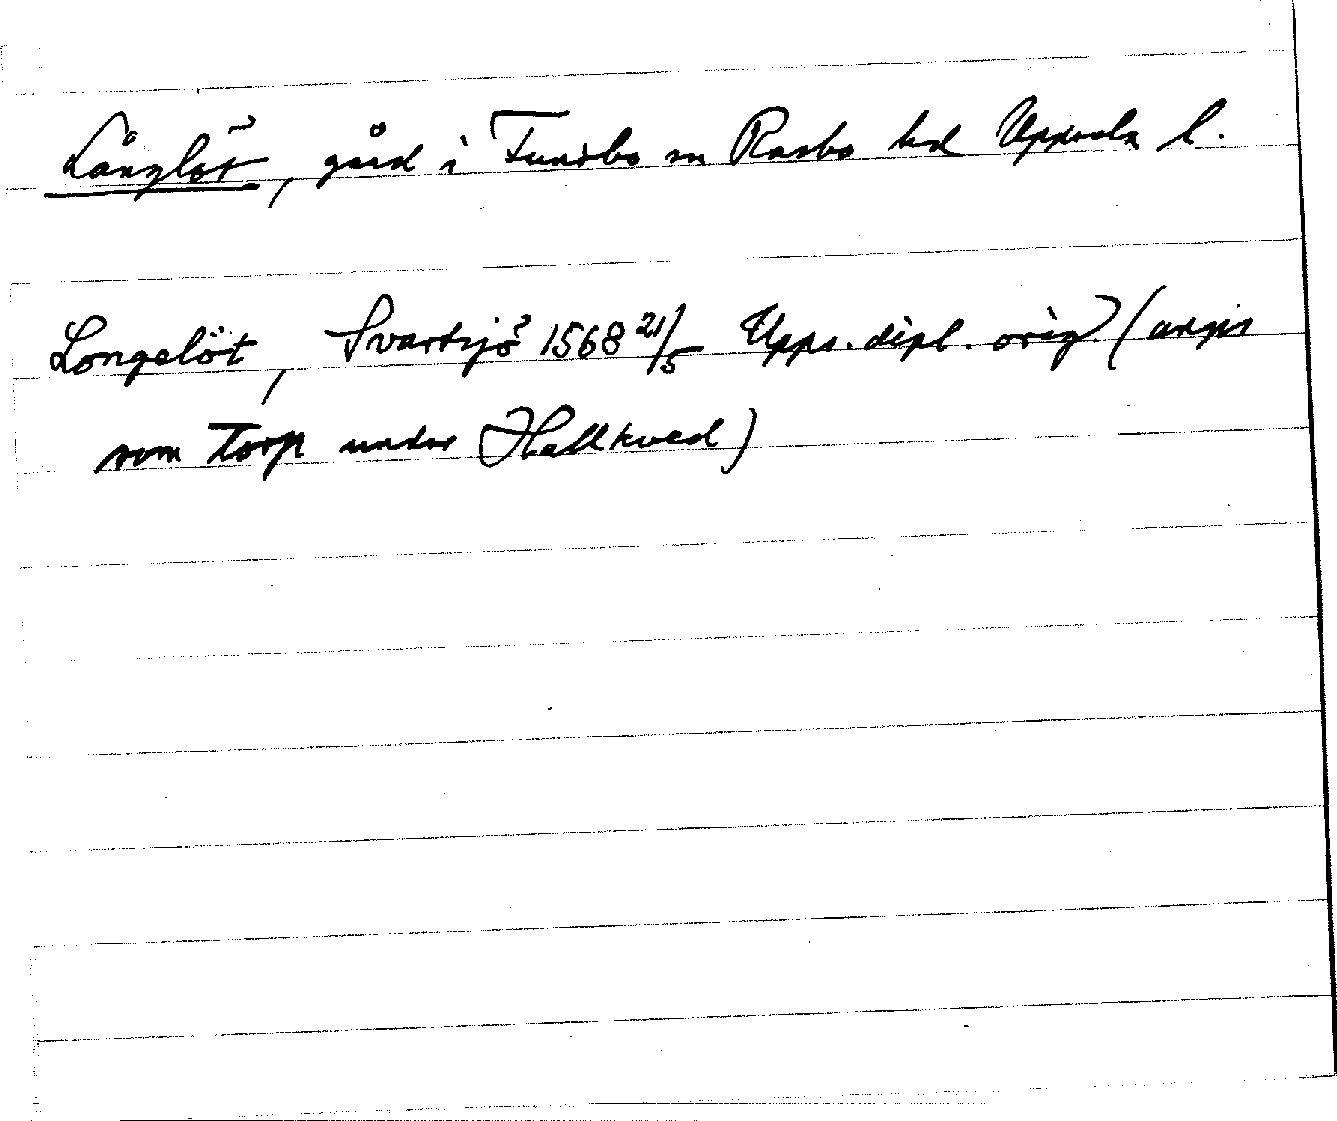 Långlöt, gård i Funbo sn Rasbo hd Uppsala l.
Longelöt, Svartsjö 1568 21/5 Upps. dipl. orig. (anges
som Torp under Hallkved)